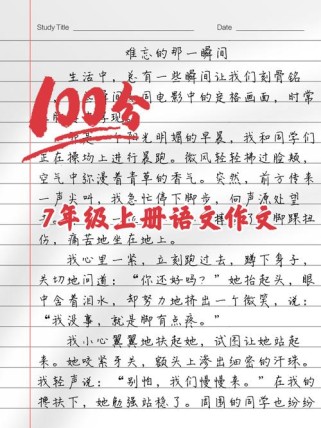 Study Title
Date
难忘的那一瞬间
生活中，总有一些瞬间让我们刻骨铭
同电影中的定格画面，时常
100分
阳光明媚的早晨，我和同学们
正在操场上进行晨跑。微风轻轻拂过脸颊，
空气中弥漫着青草的香气。突然，前方传来
一声尖叫，我急忙停下脚步，向声源处望
7年级上册语文作文
伤，痛苦地坐在地上。
我心里一紧，立刻跑过去，蹲下身子，
关切地问道：“你还好吗？”她抬起头，眼
中含着泪水，却努力地挤出一个微笑，说：
“我没事，就是脚有点疼。”
我小心翼翼地扶起她，试图让她站起
来。她咬紧牙关，额头上渗出细密的汗珠。
我轻声说：“别怕，我们慢慢来。”在我的
搀扶下，她勉强站稳了。周围的同学也纷纷